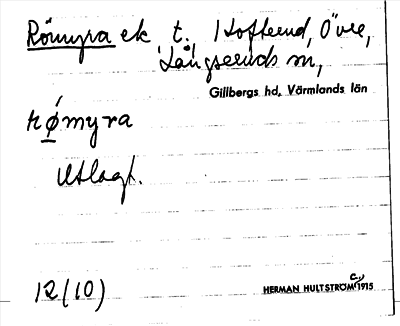 Römyra ek t. Hofterud, Övre,
Långseruds sn,
Gillbergs hd, Värmlands län
rø̀myra
Utlagt.
12(10)
HERMAN HULTSTRÖM 1915